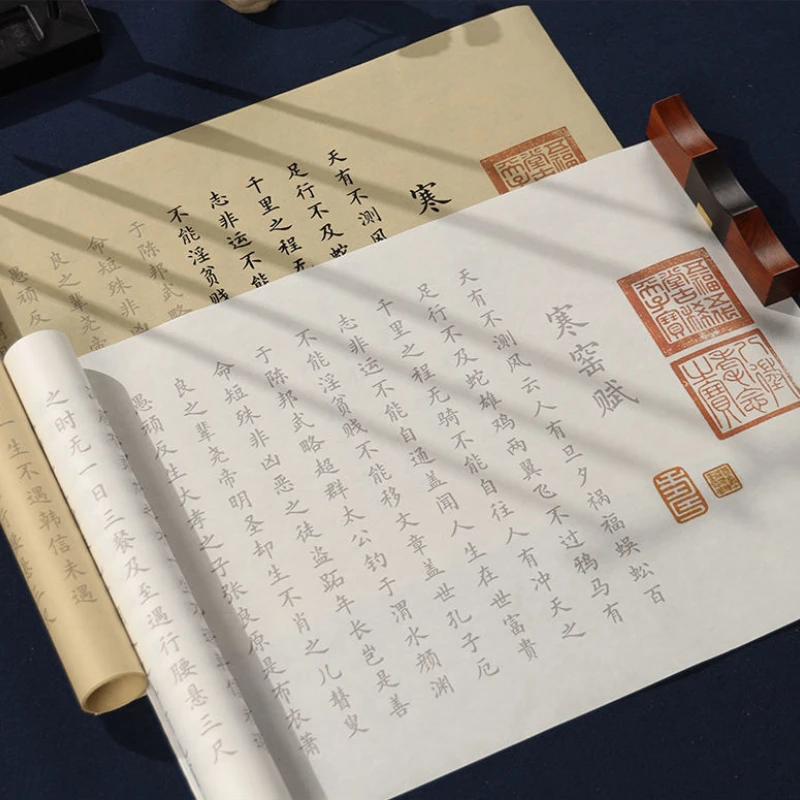 寒
天有不测风
足行不及蛇
千里之程无
志非运不能
不能淫贫贱
于陈邦武略
命短殊非凶
良之辈尧帝
愚顽反
寒窑赋
天有不测风云人有旦夕祸福蜈蚣百
足行不及蛇雄鸡两翼飞不过鸦马有
千里之程无骑不能自往人有冲天之
志非运不能自通盖闻人生在世富贵
不能淫贫贱不能移文章盖世孔子厄
于陈邦武略超群太公钓于渭水颜渊
命短殊非凶恶之徒盗跖年长岂是善
良之辈尧帝明圣却生不肖之儿瞽叟
愚顽反生大孝之子张良原是布衣萧
之时无一日三餐及至遇行腰悬三尺
一生不遇韩信未遇